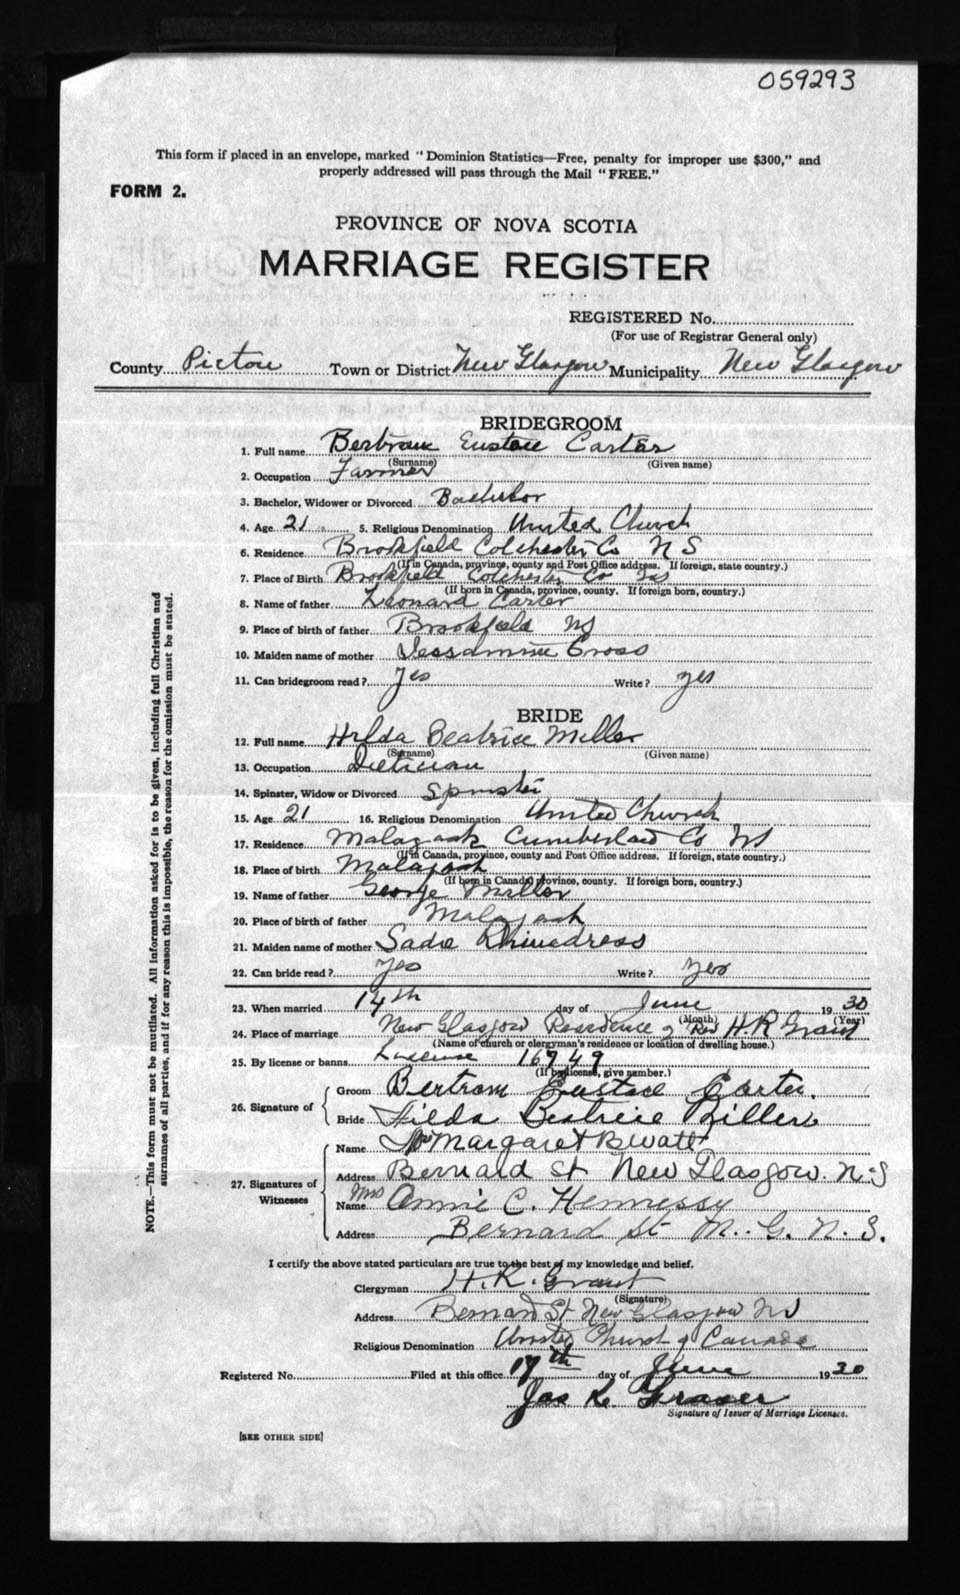 059293
This form if placed in an envelope, marked "Dominion Statistics—Free, penalty for improper use $300," and
properly addressed will pass through the Mail "FREE."
FORM 2.
PROVINCE OF NOVA SCOTIA
MARRIAGE REGISTER
REGISTERED No.
(For use of Registrar General only)
County Pictou Town or District New Glasgow Municipality New Glasgow
BRIDEGROOM
1. Full name Bertram Eustace Carter
(Surname) (Given name)
2. Occupation Farmer
3. Bachelor, Widower or Divorced Bachelor
4. Age 21 5. Religious Denomination United Church
6. Residence Brookfield Colchester Co N S
(If in Canada, province, county and Post Office address. If foreign, state country.)
7. Place of Birth Brookfield Colchester Co NS
(If born in Canada, province, county. If foreign born, country.)
8. Name of father Leonard Carter
9. Place of birth of father Brookfield NS
10. Maiden name of mother Jessamine Cross
11. Can bridegroom read? Yes Write? yes
BRIDE
12. Full name Hilda Beatrice Miller
(Surname) (Given name)
13. Occupation Dietician
14. Spinster, Widow or Divorced Spinster
15. Age 21 16. Religious Denomination United Church
17. Residence Malagash Cumberland Co NS
(If in Canada, province, county and Post Office address. If foreign, state country.)
18. Place of birth Malagash
(If born in Canada, province, county. If foreign born, country.)
19. Name of father George Miller
20. Place of birth of father Malagash
21. Maiden name of mother Sadie
22. Can bride read? yes Write? yes
23. When married 14th day of June 1930
(Month) (Year)
24. Place of marriage New Glasgow Residence of Rev H. R Grant
(Name of church or clergyman's residence or location of dwelling house.)
25. By license or banns License 16949
(If by license, give number.)
26. Signature of Groom Bertram Eustace Carter.
Bride Hilda Beatrice Miller
27. Signatures of Witnesses
Name Margaret B Watt
Address Bernard St New Glasgow. N.S
Name Mrs Annie C. Hennessy
Address Bernard St N. G. N. S.
I certify the above stated particulars are true to the best of my knowledge and belief.
Clergyman H. R. Grant
(Signature)
Address Bernard St New Glasgow NS
Religious Denomination United Church of Canada
Registered No. Filed at this office 17th day of June 1930
Jas K. Fraser
Signature of Issuer of Marriage Licenses.
[SEE OTHER SIDE]
NOTE.—This form must not be mutilated. All information asked for is to be given, including full Christian and
surnames of all parties, and if for any reason this is impossible, the reason for the omission must be stated.